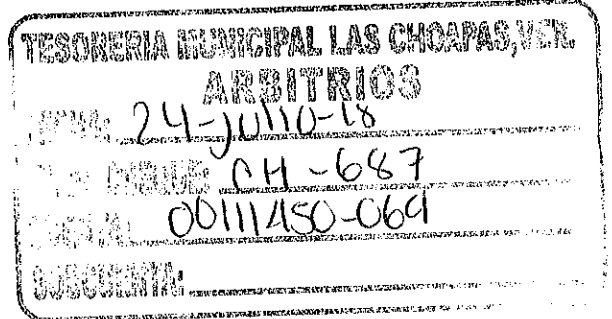 TESORERIA MUNICIPAL LAS CHOAPAS, VER.
ARBITRIOS
FECHA: 24-julio-18
CHEQUE: CH-687
00111450-069
SUBCUENTA: